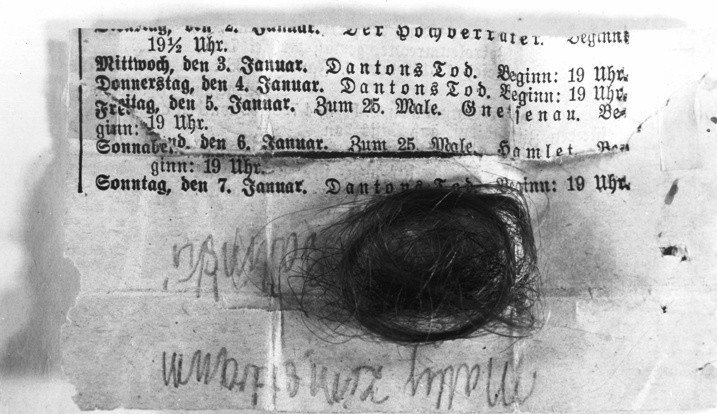 Dienstag, den 2. Januar. Der Hochverräter. Beginn:
19½ Uhr.
Mittwoch, den 3. Januar. Dantons Tod. Beginn: 19 Uhr.
Donnerstag, den 4. Januar. Dantons Tod. Beginn: 19 Uhr.
Freitag, den 5. Januar. Zum 25. Male. Gneisenau. Be-
ginn: 19 Uhr.
Sonnabend, den 6. Januar. Zum 25. Male. Hamlet. Be-
ginn: 19 Uhr.
Sonntag, den 7. Januar. Dantons Tod. Beginn: 19 Uhr.